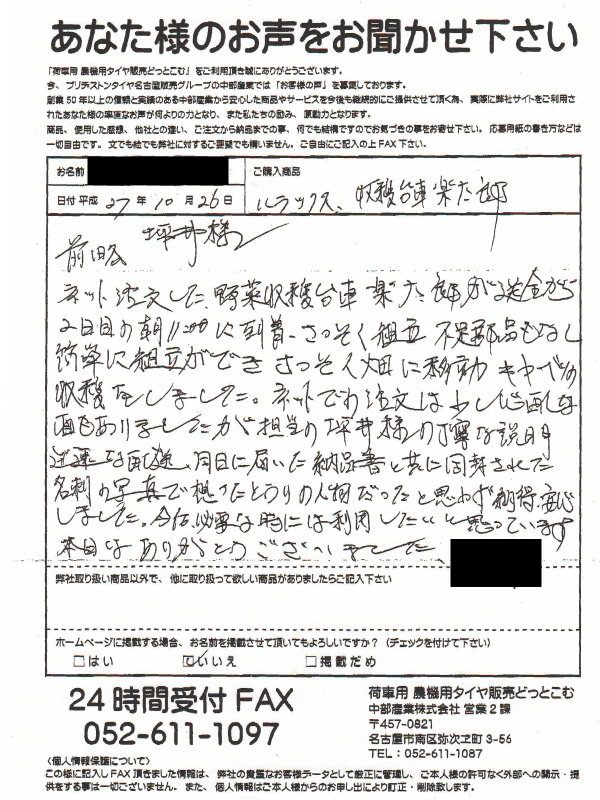 あなた様のお声をお聞かせ下さい
「荷車用 農機用タイヤ販売どっとこむ」をご利用頂き誠にありがとうございます。
今、ブリヂストンタイヤ名古屋販売グループの中部産業では「お客様の声」を募集しております。
創業50年以上の信頼と実績のある中部産業から安心した商品やサービスを今後も継続的にご提供させて頂く為、実際に弊社サイトをご利用さ
れたあなた様の率直なお声が何よりの力となり、また私たちの励み、原動力となります。
商品、使用した感想、他社との違い、ご注文から納品までの事、何でも結構ですのでお気づきの事をお寄せ下さい。応募用紙の書き方などは
一切自由です。文でも絵でも弊社に対するご要望でも構いません。ご自由にご記入の上FAX下さい。
お名前
ご購入商品
日付 平成 27年 10月 26日
ハラックス、収穫台車楽太郎
坪井様
前略
ネット注文した野菜収穫台車楽太郎が送金から
2日目の朝に到着、さっそく組立 不足部品もなし
簡単に組立ができさっそく畑に移動 キャベツの
収穫をしました。ネットでわ注文は少し心配な
面もありましたが担当の坪井様の丁寧な説明
迅速な配送、同日に届いた納品書と共に同封された
名刺の写真で想ったとうりの人物だったと思わず納得、安心
しました。今后必要な時には利用したいと思っています
本日はありがとうございました、
弊社取り扱い商品以外で、他に取り扱って欲しい商品がありましたらご記入下さい
ホームページに掲載する場合、お名前を掲載させて頂いてもよろしいですか?(チェックを付けて下さい)
□はい ☑いいえ □掲載だめ
24時間受付FAX
052-611-1097
荷車用 農機用タイヤ販売どっとこむ
中部産業株式会社 営業2課
〒457-0821
名古屋市南区弥次ヱ町3-56
TEL:052-611-1087
〈個人情報保護について〉
この様に記入しFAX頂きました情報は、弊社の貴重なお客様データとして厳正に管理し、ご本人様の許可なく外部への開示・提
供をする事は一切ございません。また、個人情報はご本人様からのお申し出により訂正・削除致します。